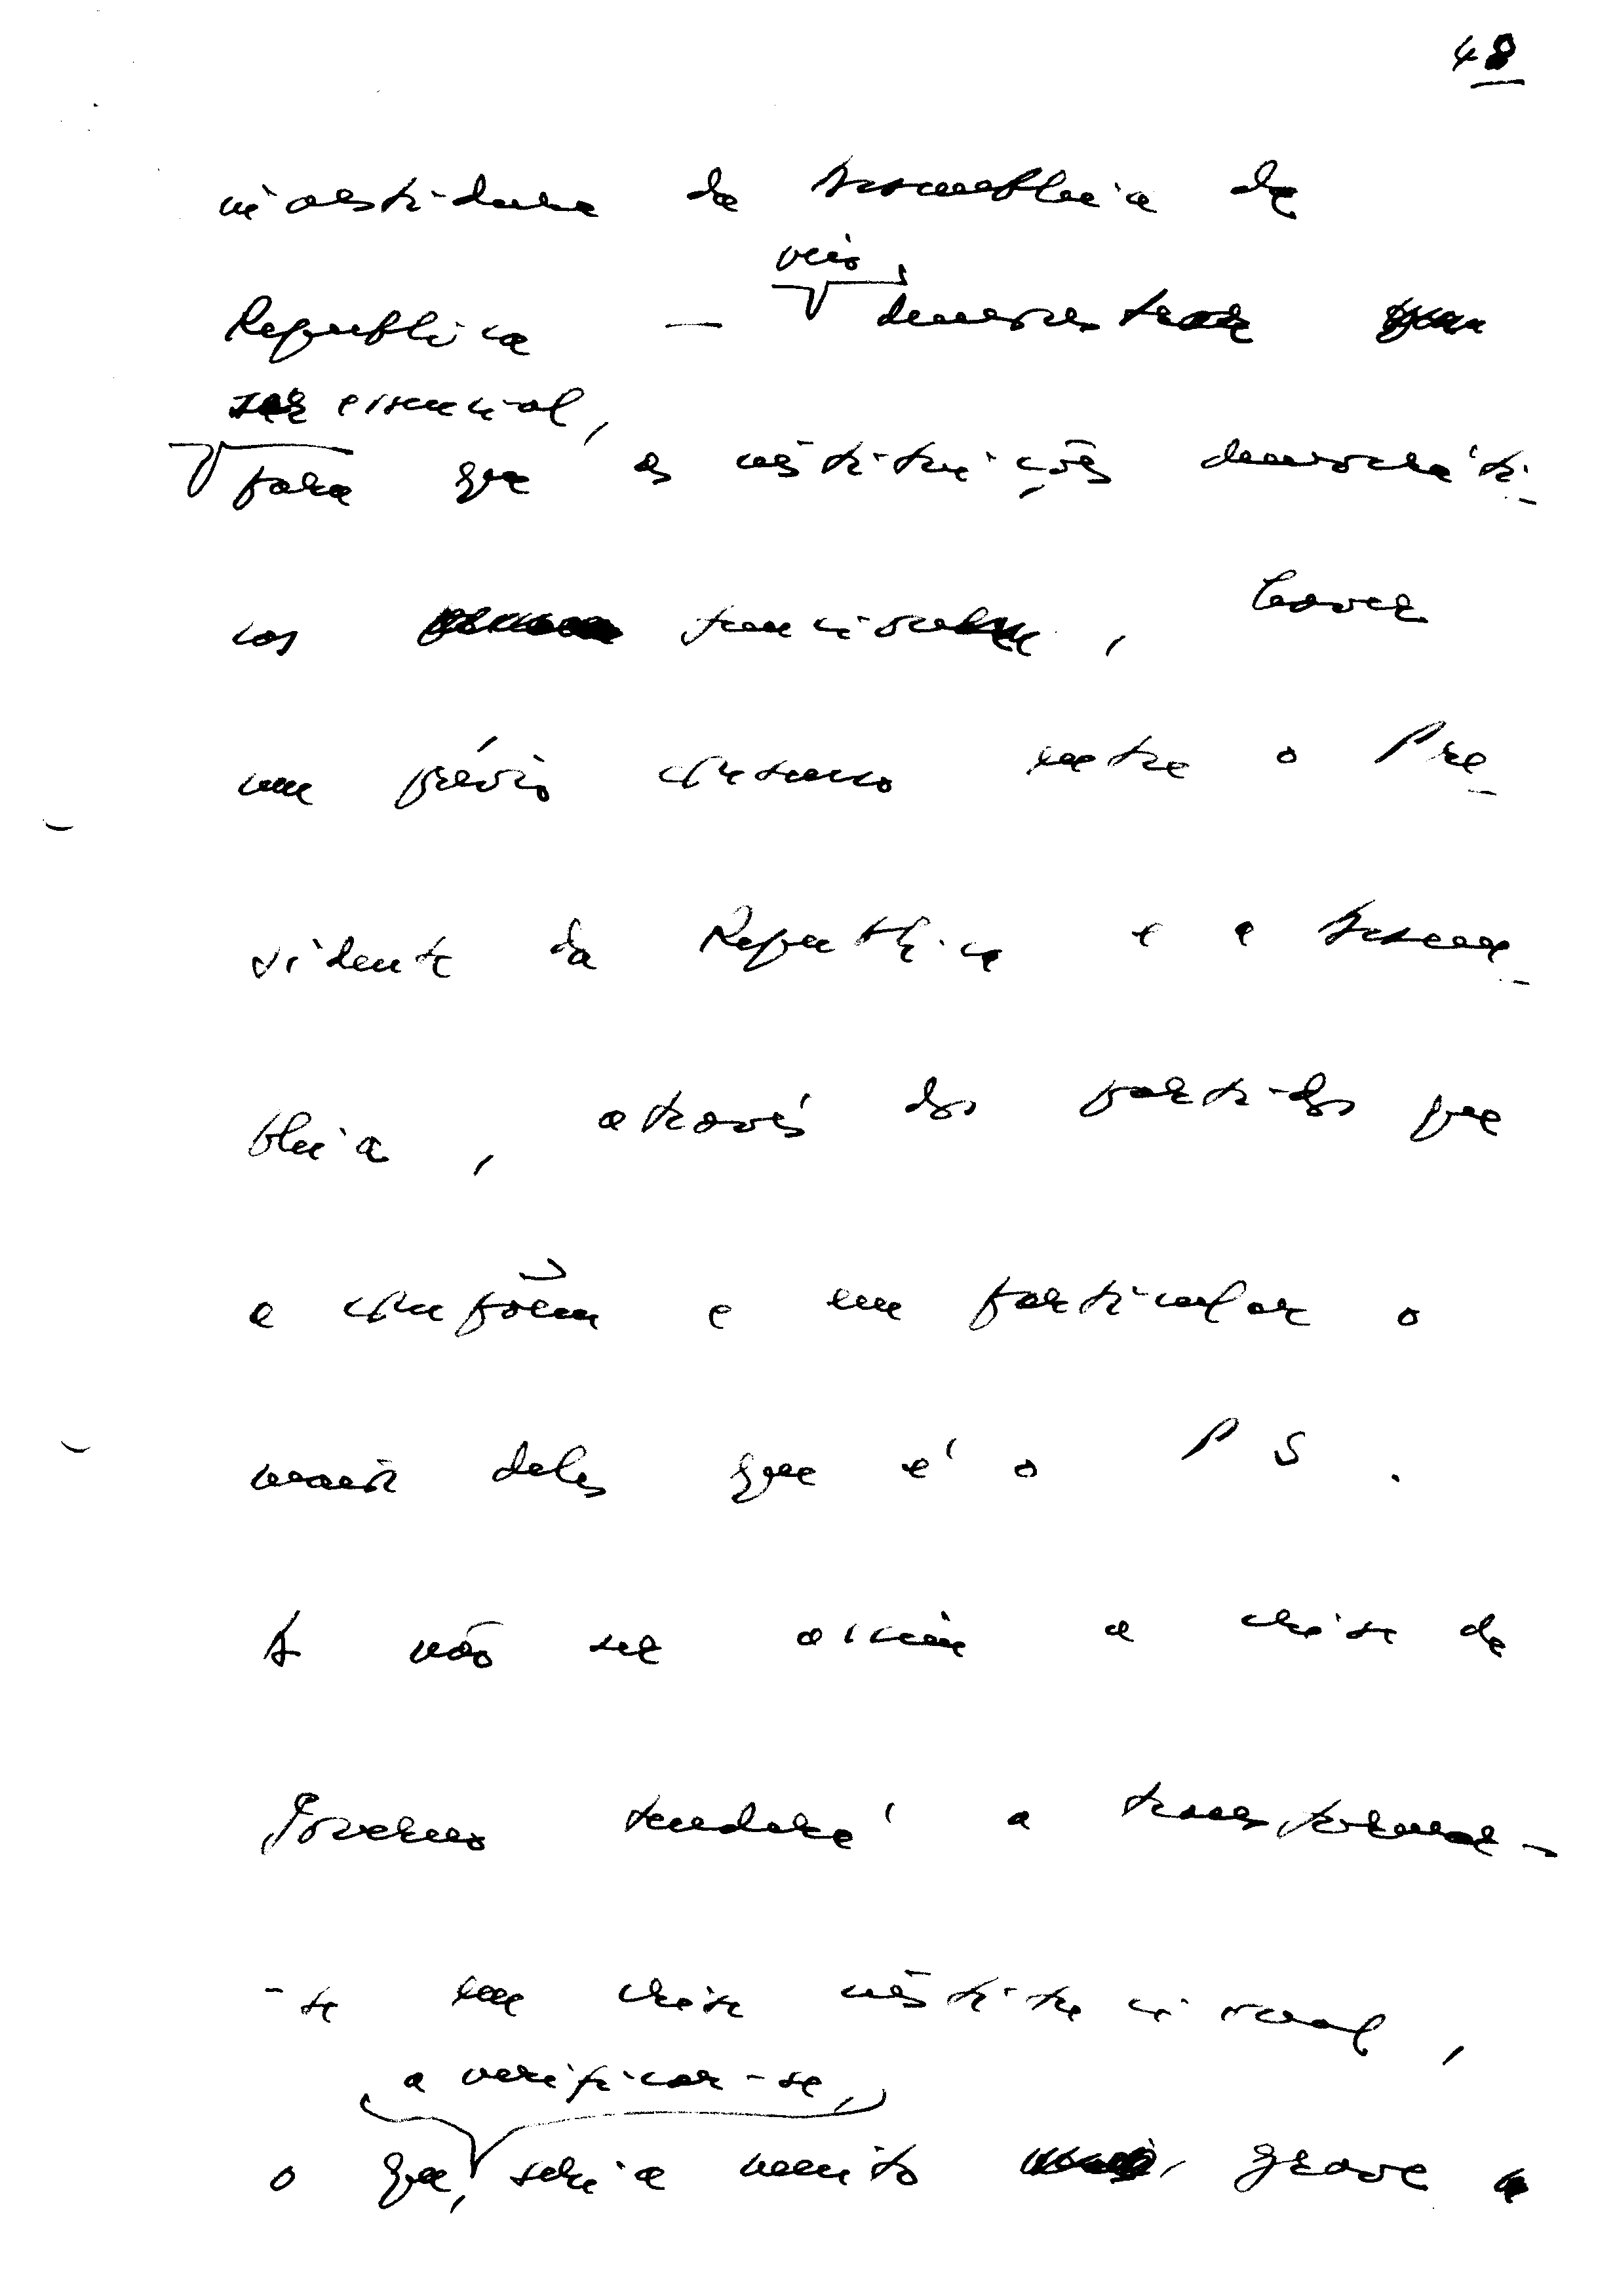 48
investidura da Assembleia da
veio,
Republica — demonstrar
ser essencial,
para que as instituições democráti-
cas funcionem, haver
um prévio consenso entre o Pre-
sidente da Republica e a Assem-
bleia, através dos partidos que
a compõem e em particular o
maior deles que é o PS.
A não ser assim a crise de
Governo tenderá a transformar-
-se em crise institucional,
a verificar-se,
o que, seria muito grave